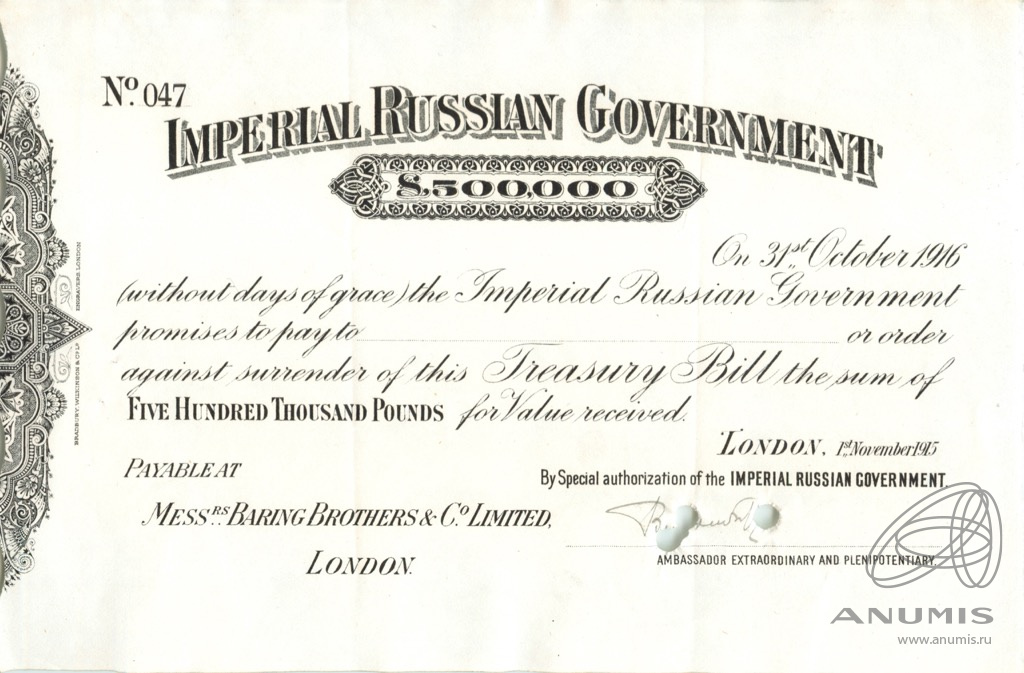 No. 047
IMPERIAL RUSSIAN GOVERNMENT
£500,000
On 31st October 1916
(without days of grace) the Imperial Russian Government
promises to pay to or order
against surrender of this Treasury Bill the sum of
FIVE HUNDRED THOUSAND POUNDS for Value received.
LONDON, 1st November 1915
PAYABLE AT
By Special authorization of the IMPERIAL RUSSIAN GOVERNMENT.
MESSRS. BARING BROTHERS & CO. LIMITED,
LONDON.
AMBASSADOR EXTRAORDINARY AND PLENIPOTENTIARY.
BRADBURY, WILKINSON & CO. LD. ENGRAVERS, LONDON
ANUMIS
www.anumis.ru